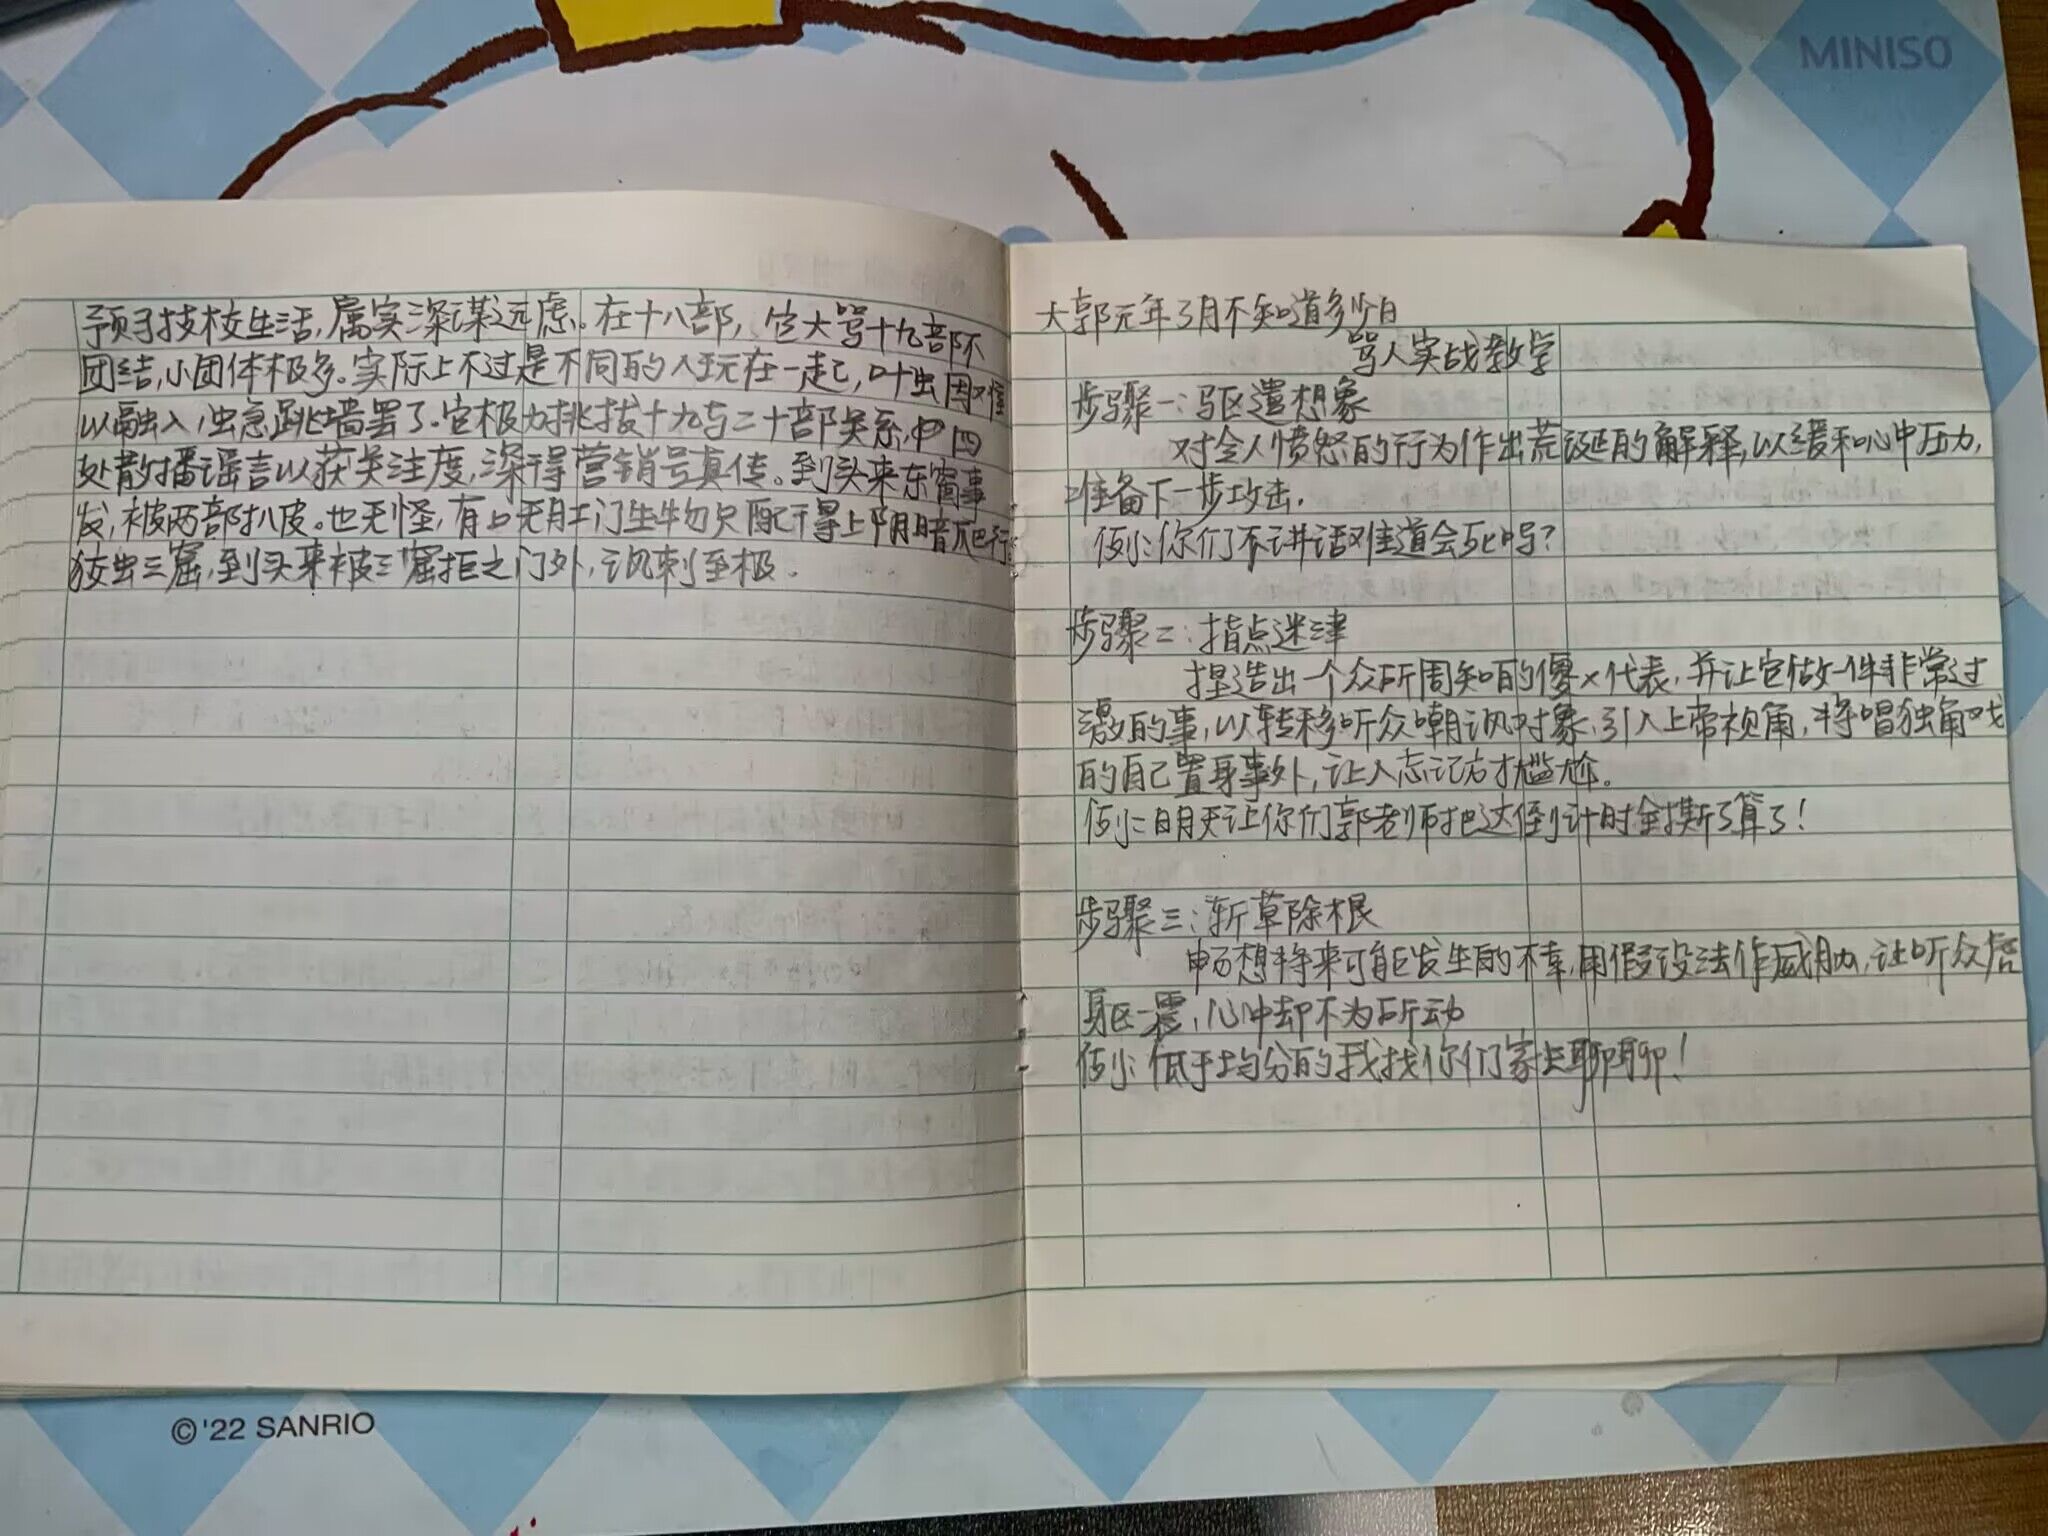 MINISO
预习技校生活，属实深谋远虑。在十八部，它大骂十九部不
团结，小团体极多。实际上不过是不同的人玩在一起，叶虫因难
以融入，虫急跳墙罢了。它极力挑拨十九与二十部关系，四
处散播谣言以获关注度，深得营销号真传。到头来东窗事
发，被两部扒皮。也无怪，有口无肛门生物只配干得上阴暗爬行
狡虫三窟，到头来被三窟拒之门外，讽刺至极。
大郭元年3月不知道多少日
骂人实战教学
步骤一：驱遣想象
对令人愤怒的行为作出荒诞的解释，以缓和心中压力，
准备下一步攻击．
例：你们不讲话难道会死吗？
步骤二：指点迷津
捏造出一个众所周知的傻×代表，并让它做一件非常过
激的事，以转移听众嘲讽对象，引入上帝视角，将唱独角戏
的自己置身事外，让人忘记方才尴尬。
例：明天让你们郭老师把这倒计时全撕了算了！
步骤三：斩草除根
畅想将来可能发生的不幸，用假设法作威胁，让听众后
身区一震，心中却不为所动
例：低于均分的我找你们家长聊聊！
©'22 SANRIO